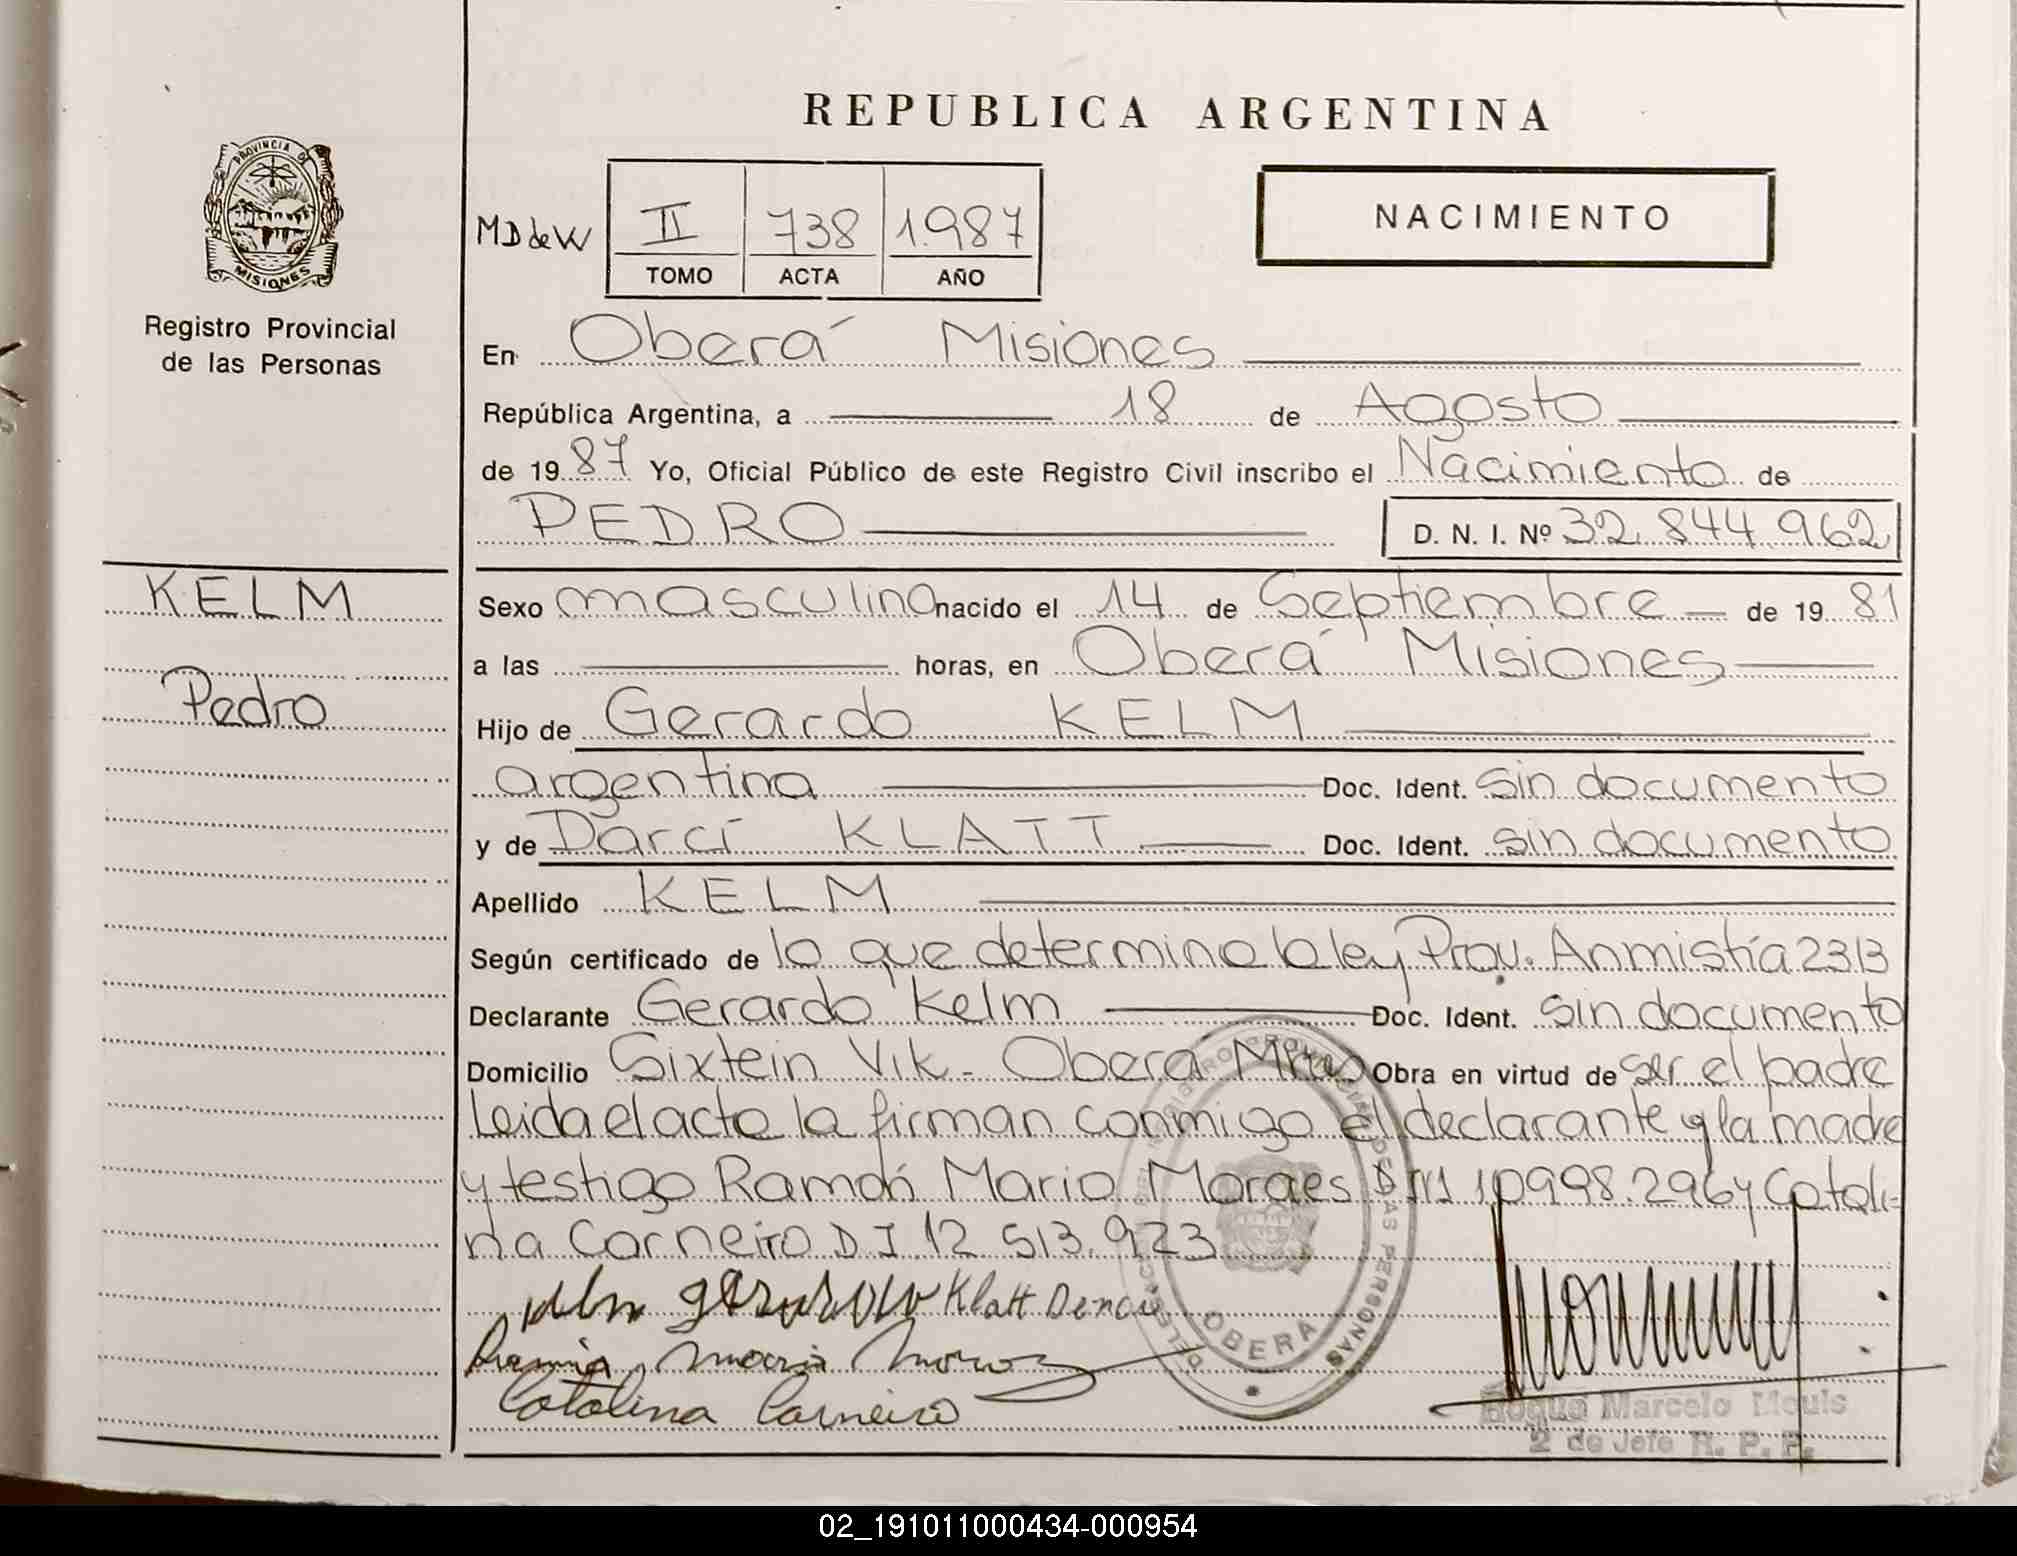 REPUBLICA ARGENTINA
PROVINCIA DE
MISIONES
Registro Provincial
de las Personas
MD de W
II 738 1.987
TOMO ACTA AÑO
NACIMIENTO
En Oberá Misiones
República Argentina, a 18 de Agosto
de 19 87 Yo, Oficial Público de este Registro Civil inscribo el Nacimiento de
PEDRO D. N. I. Nº 32.844.962
KELM
Pedro
Sexo masculino nacido el 14 de Septiembre de 19 81
a las horas, en Oberá Misiones
Hijo de Gerardo KELM
argentina Doc. Ident. sin documento
y de Darcí KLATT Doc. Ident. sin documento
Apellido KELM
Según certificado de lo que determina la ley Prov. Anmistía 2313
Declarante Gerardo Kelm Doc. Ident. sin documento
Domicilio Sixtein Vik - Oberá Mnes Obra en virtud de ser el padre
Leida el acta la firman conmigo el declarante y la madre
y testigo Ramón Mario Moraes 10998.296 y Catali=
na Carneiro D I 12 513.923
Klatt
Catalina Carneiro
OBERA
Roque Marcelo
2 de Jefe R. P. P.
02_191011000434-000954